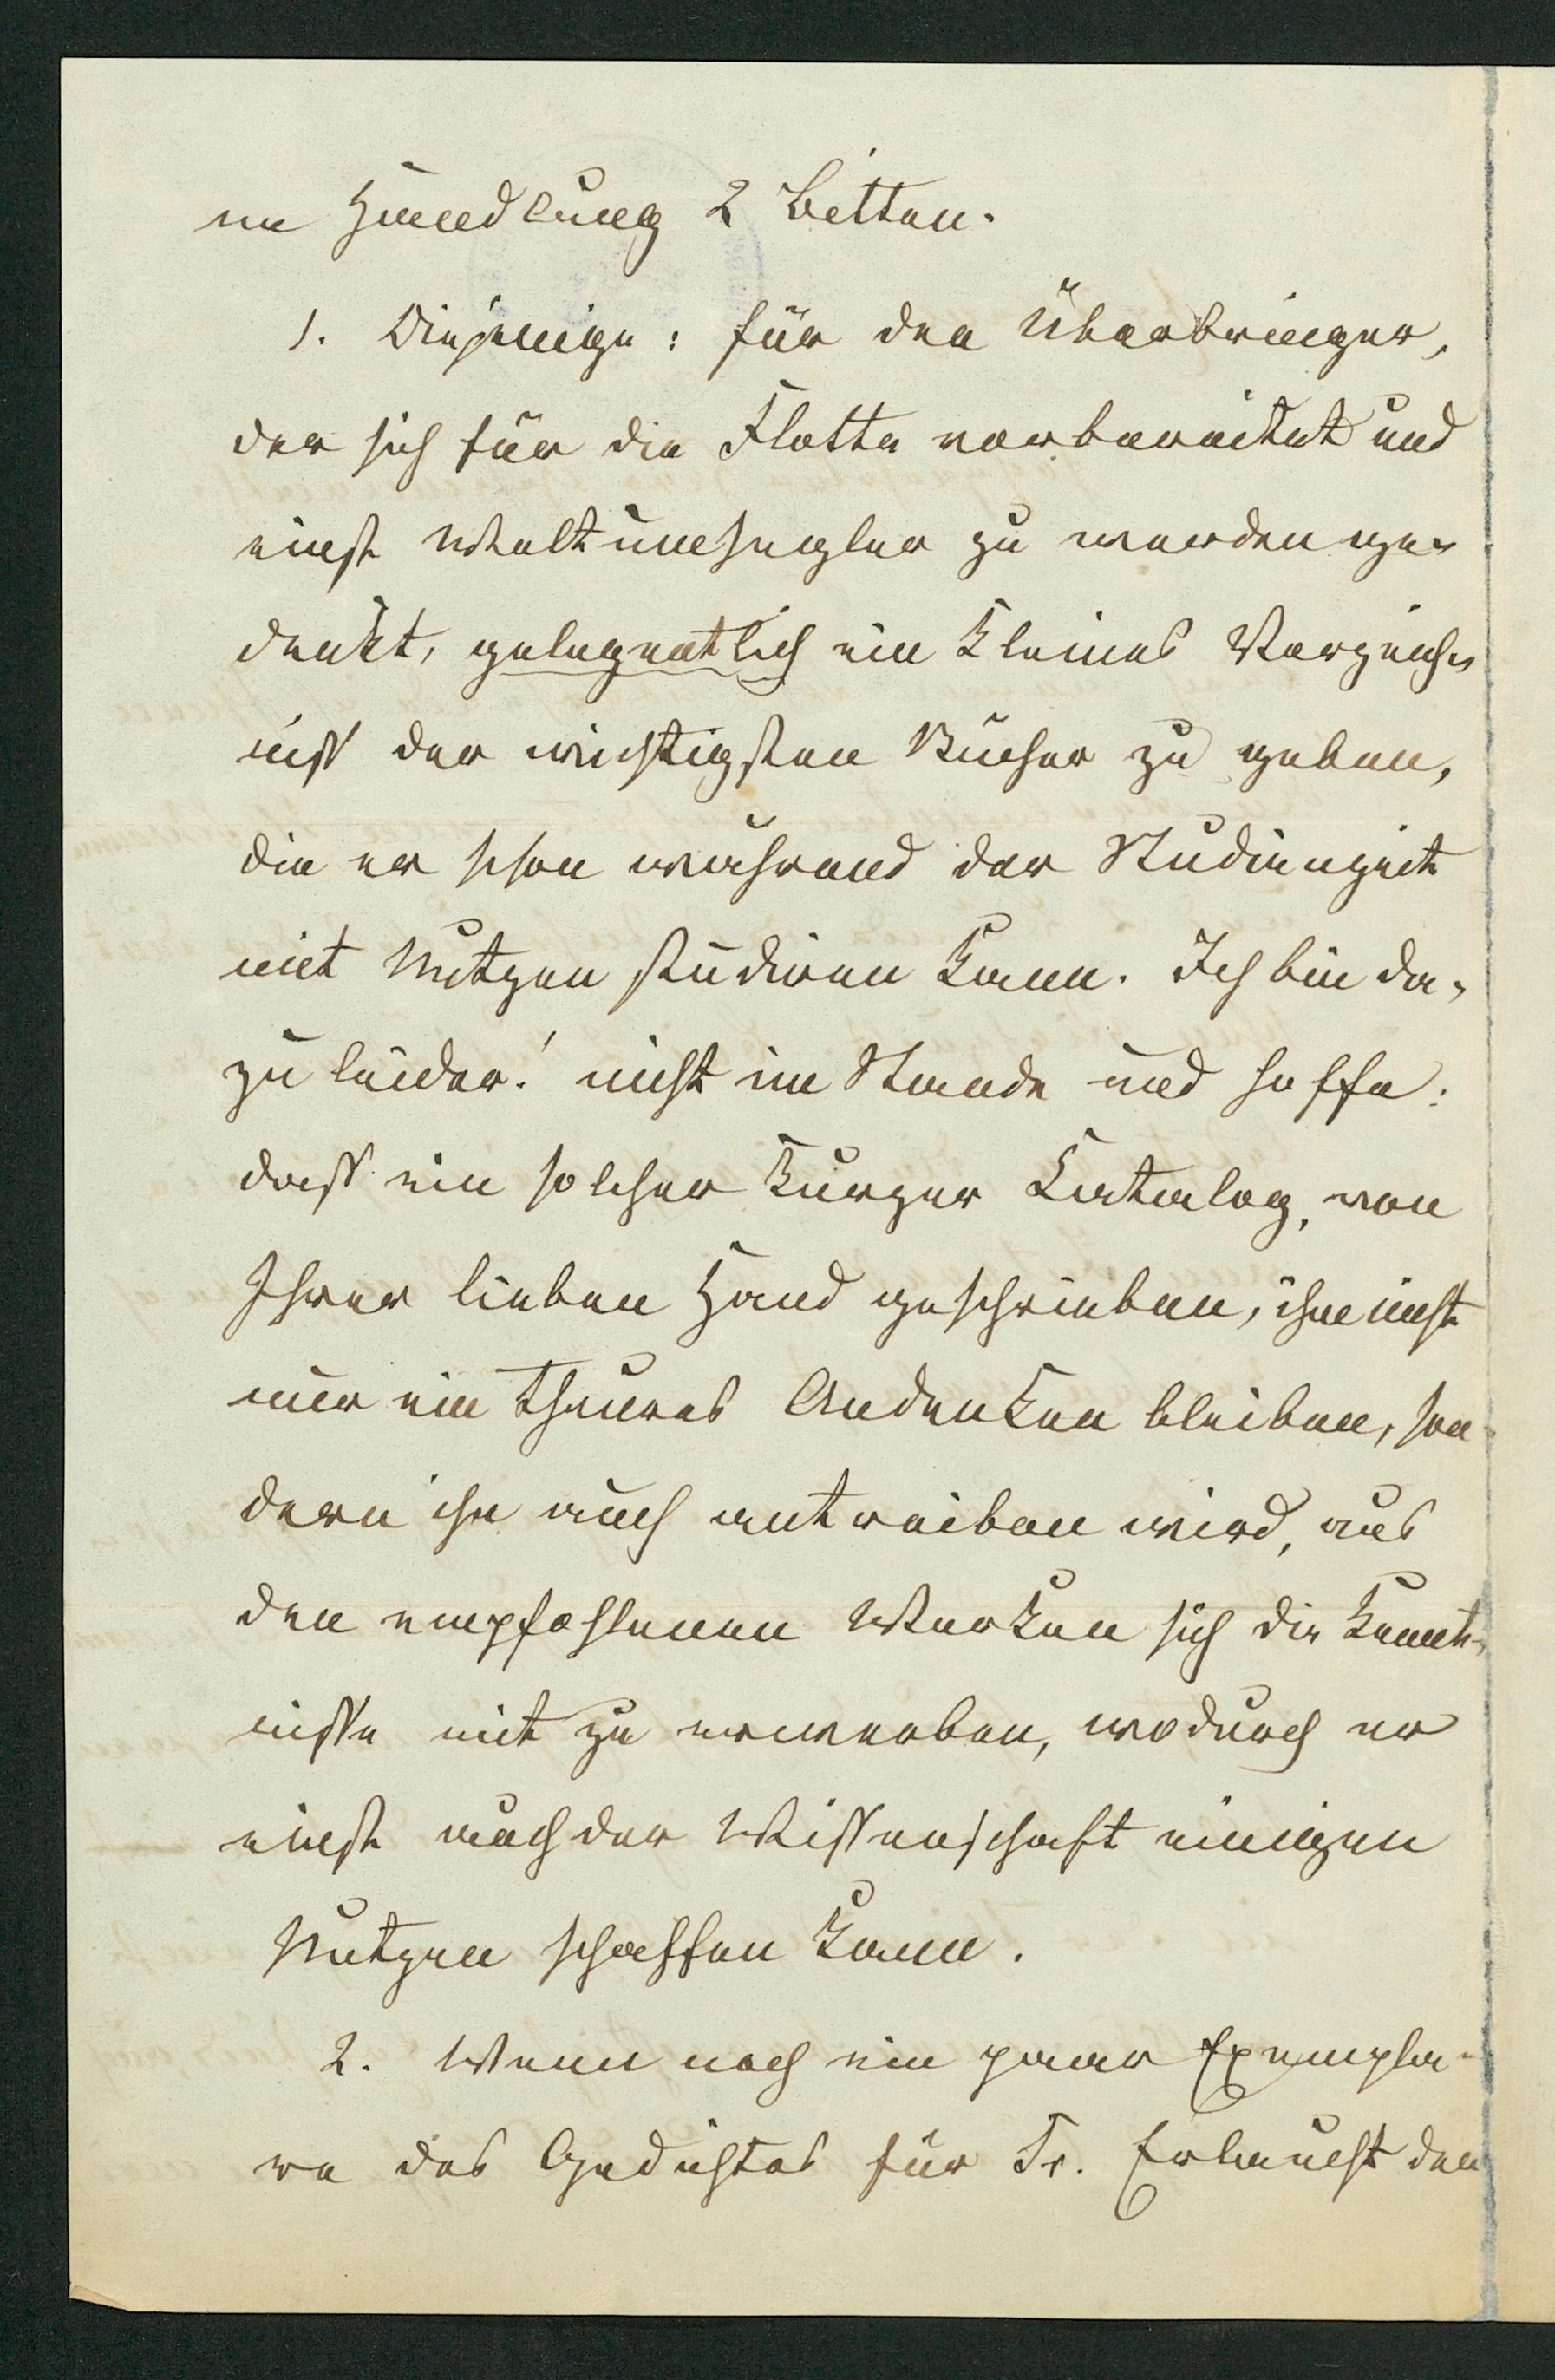 ne Handlung 2 Bitten.
1. Diejenige: für den Überbringer,
der sich für die Flotte vorbereitet und
einst Weltumsegler zu werden ge-
denkt, gelegentlich ein kleines Verzeich-
niß der wichtigsten Bücher zu geben,
die er schon während der Studienzeit
mit Nutzen studiren kann. Ich bin da-
zu leider! nicht im Stande und hoffe:
daß ein solcher kurzer Katalog, von
Ihrer lieben Hand geschrieben, ihm nicht
nur ein theures Andenken bleiben, son-
dern ihn auch antreiben wird, aus
den empfohlenen Werken sich die Kennt-
nisse mit zu erwerben, wodurch er
einst auch der Wissenschaft einigen
Nutzen schaffen kann.
2. Wenn noch ein paar Exempla-
re des Gedichtes für Sr. Erlaucht den